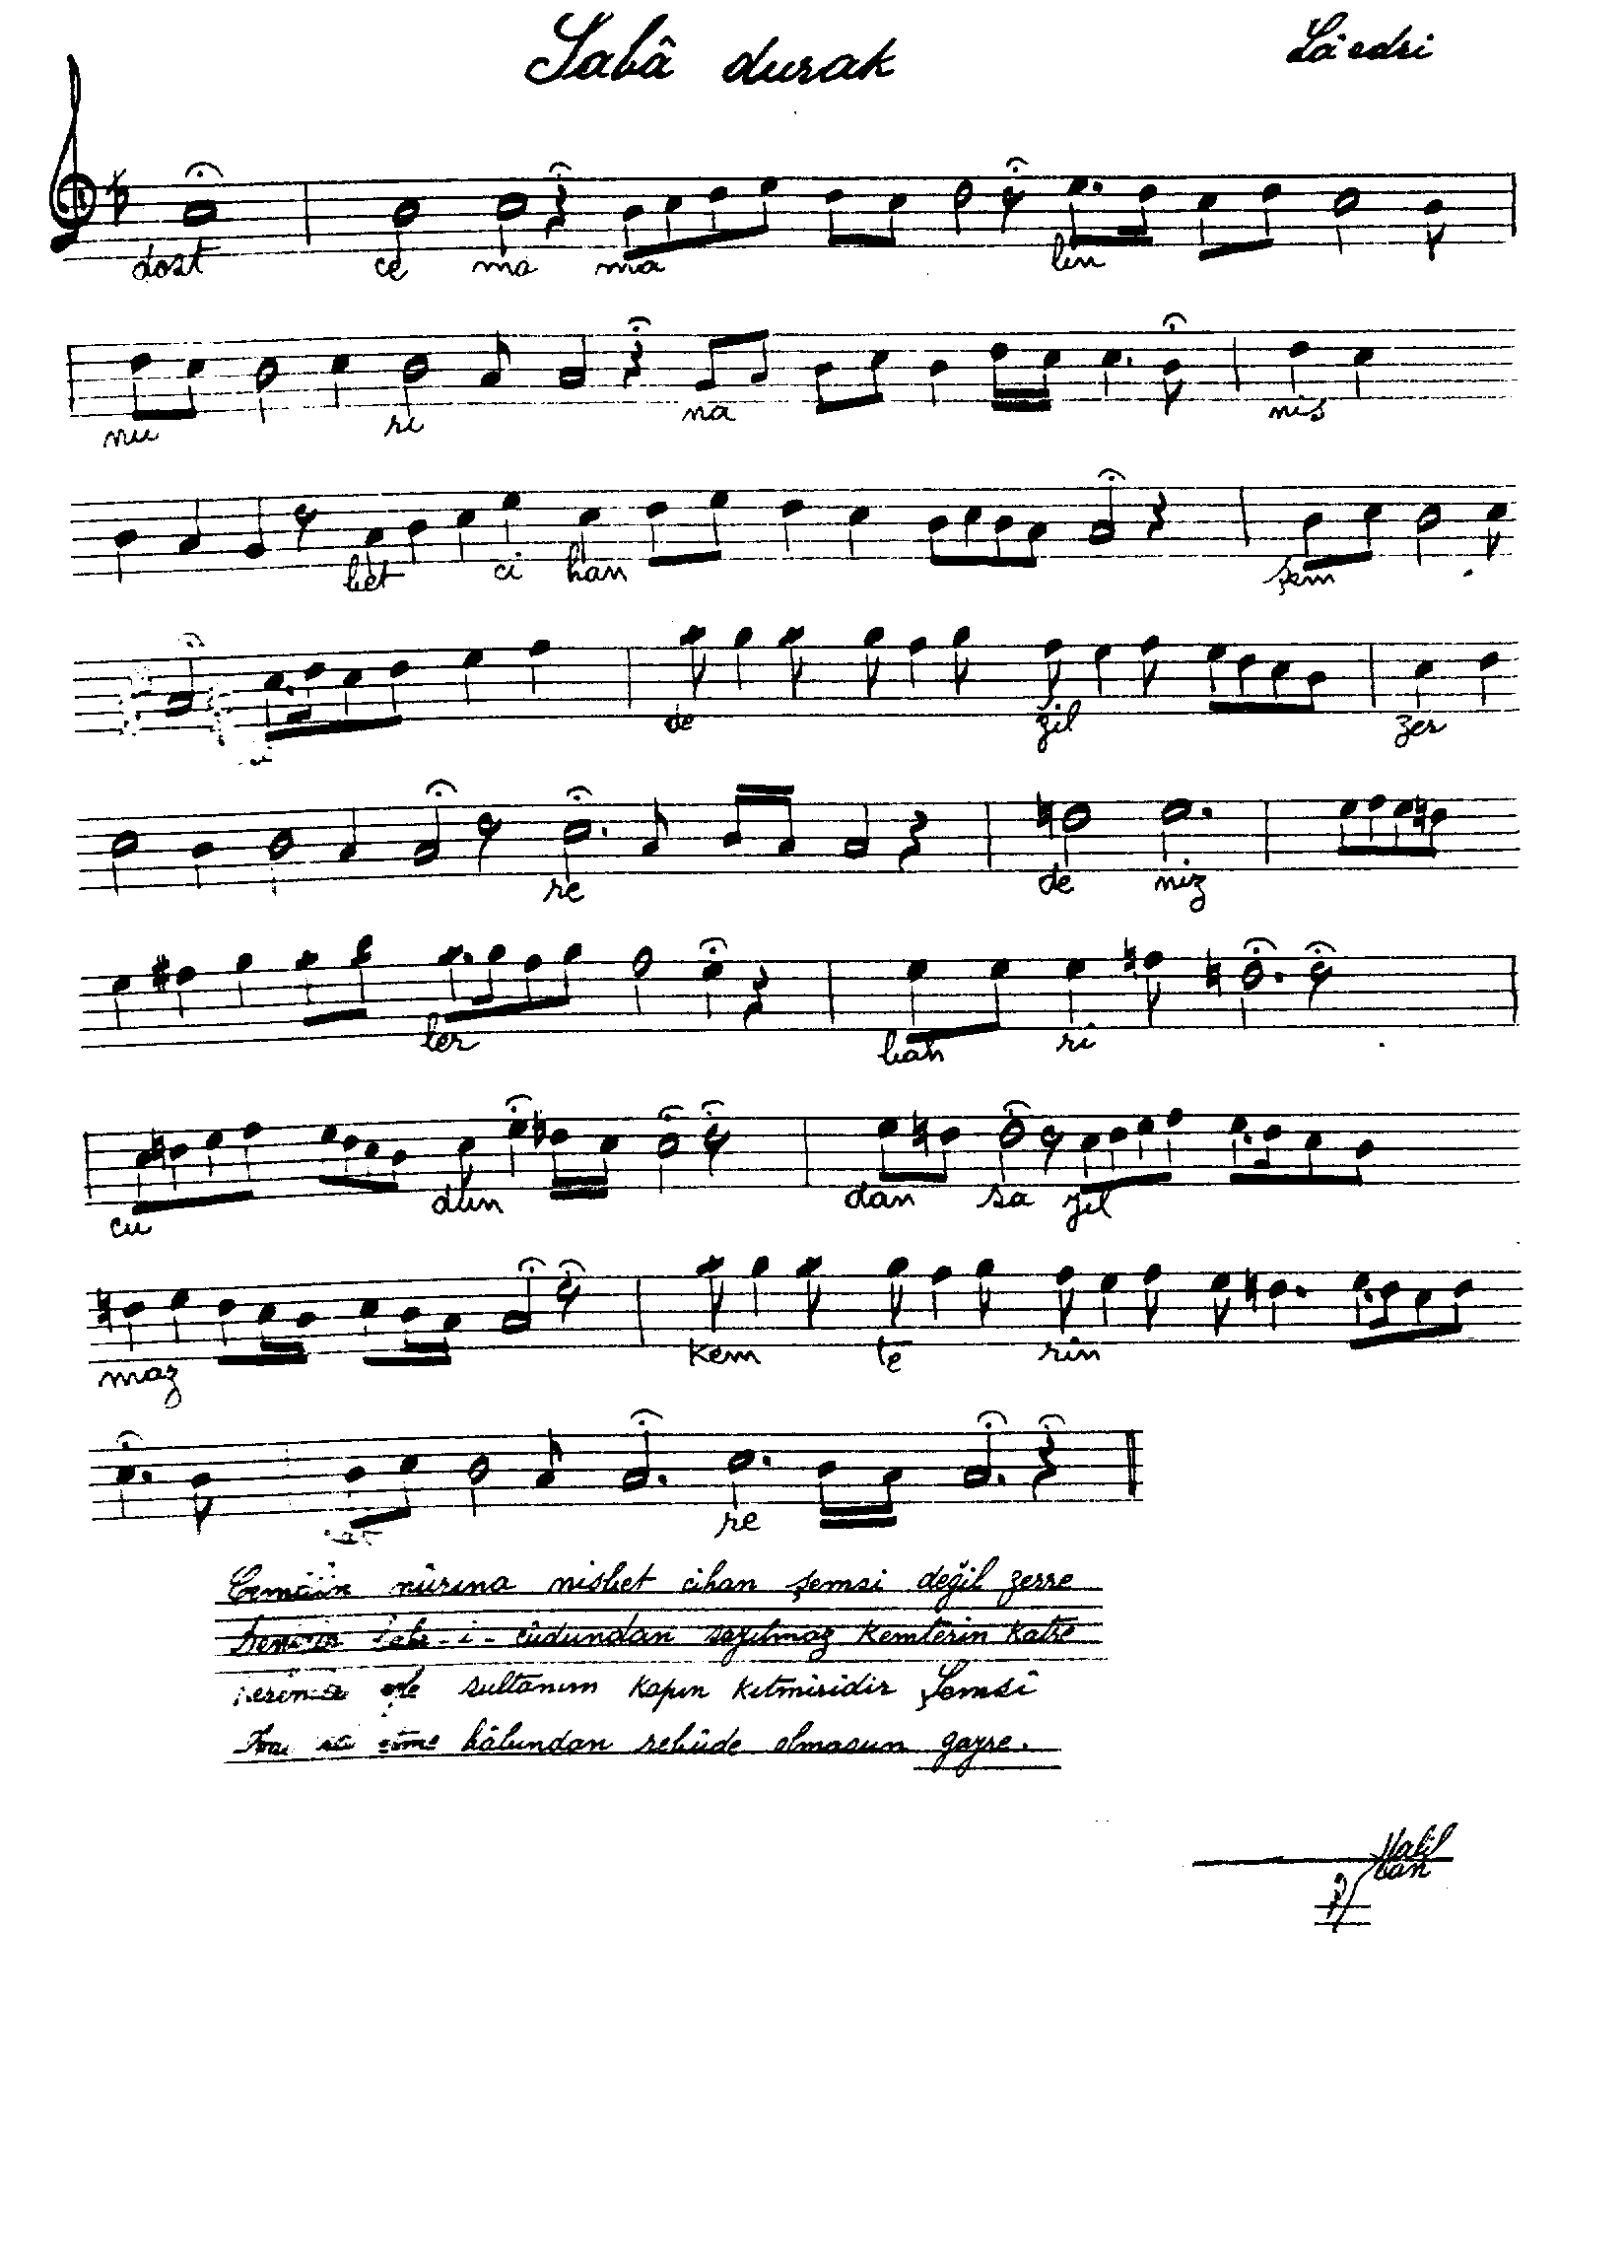 Sabâ durak
Lâedri
dost ce ma ma lin
nu ri na nis
bet ci han şem
de ğil zer
re de niz
ler bah ri
cu dun dan sa yıl
maz kem te rin
re
nûrına nisbet cihan şemsi değil zerre
i - cûdundan sayılmaz kemterin katre
sultanım kapın kıtmiridir Şemsî
hâlundan rebûde olmasun gayre.
Halil
Can